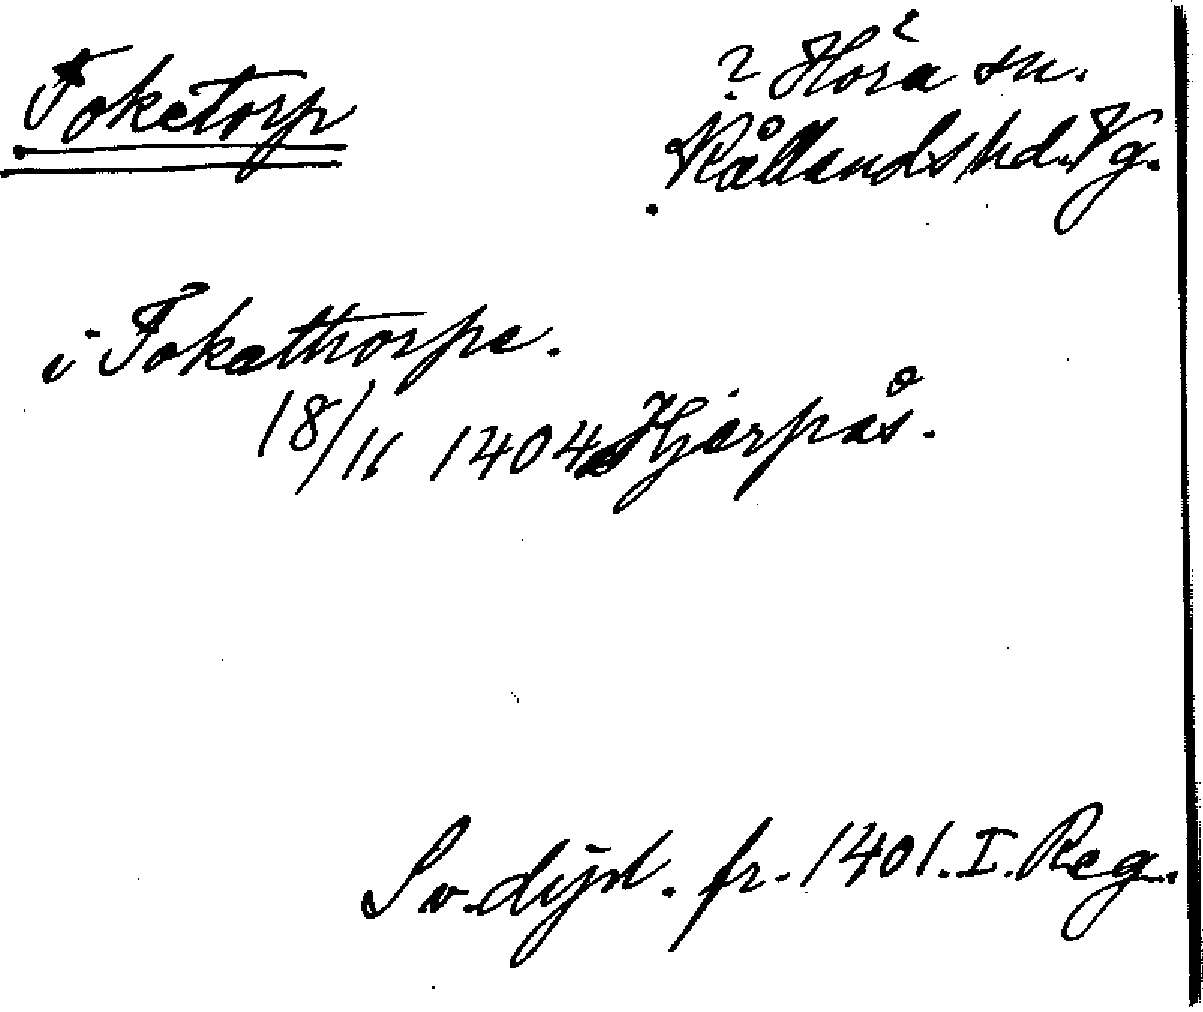 Foketorp
? Hóra sn.
Kållands hd. Vg.
i Fokathorpe.
18/11 1404 Hjärpås.
Sv. dipl. fr. 1401. I. Reg.